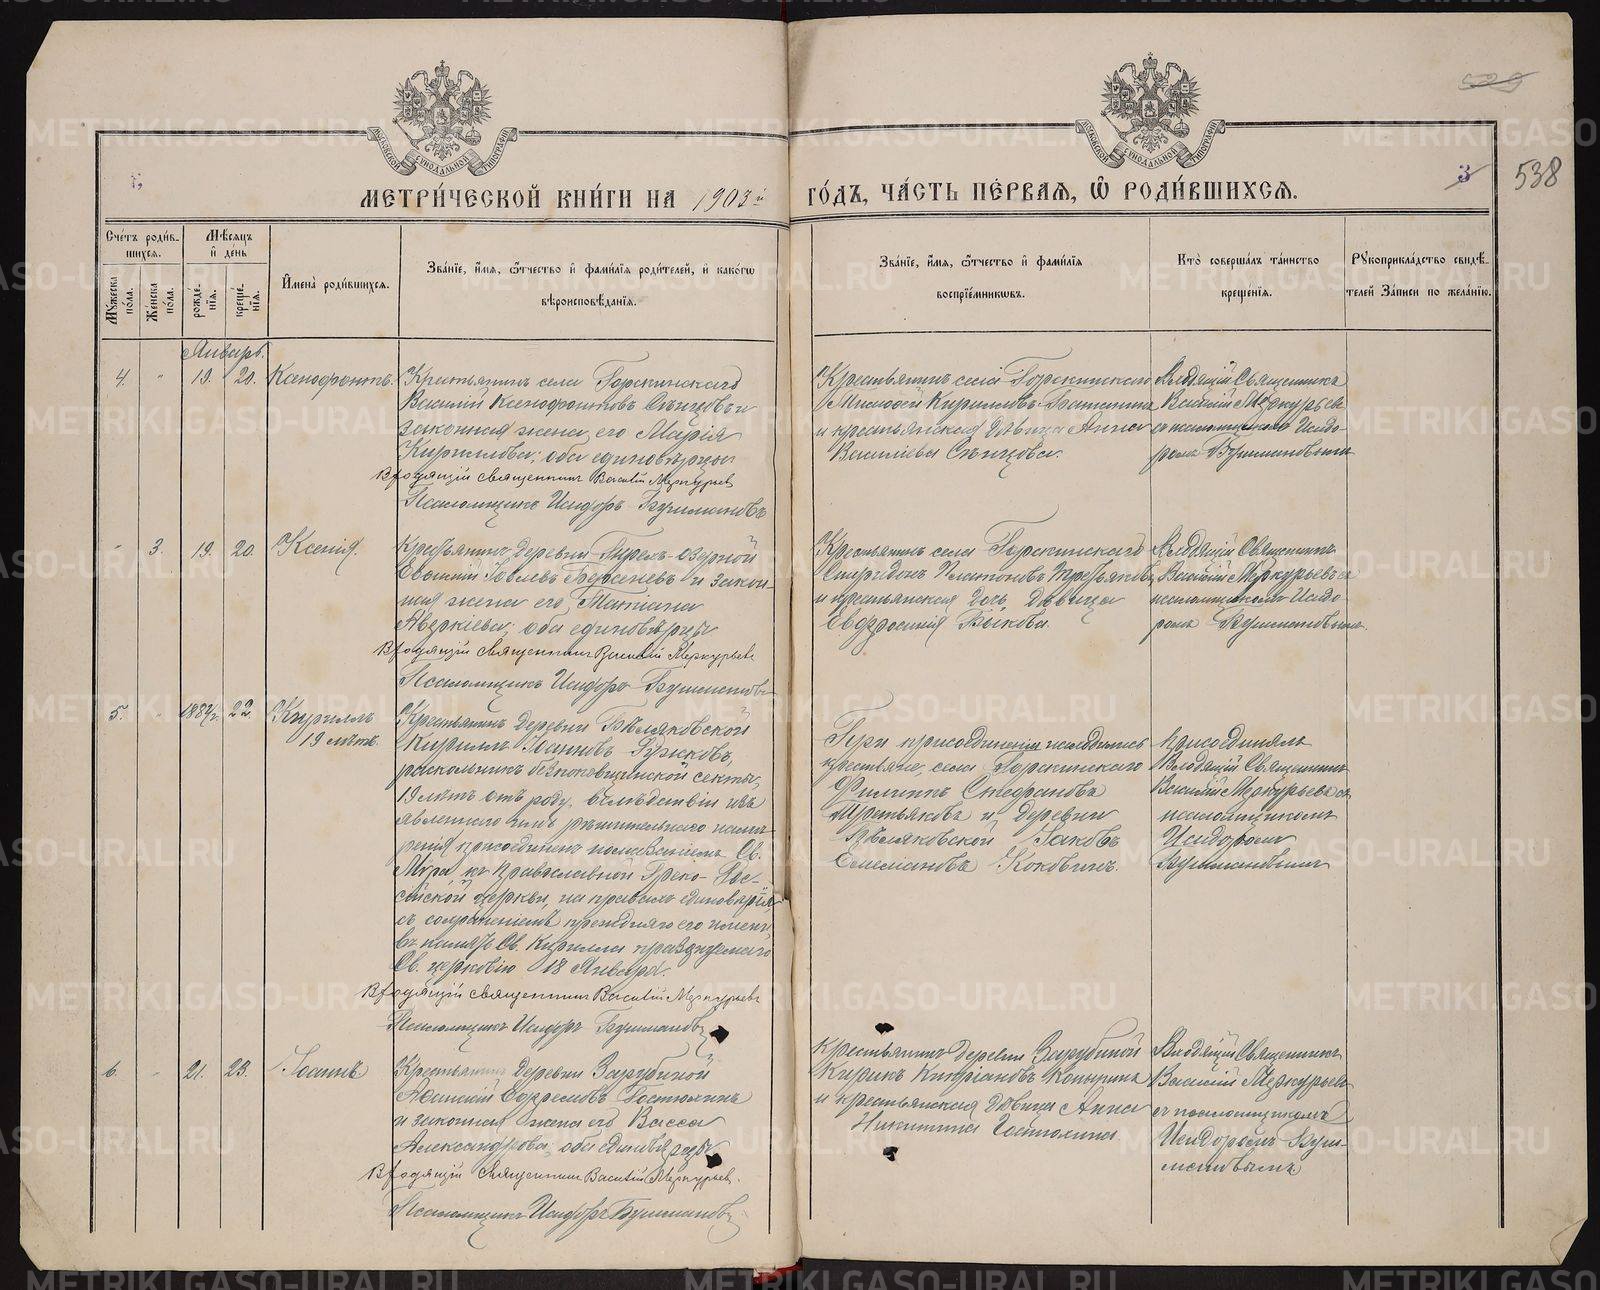 МЕТРИ́ЧЕСКОЙ КНИ́ГИ НА 1903й ГО́ДЪ, ЧА́СТЬ ПЕ́РВАЯ, Ѡ РОДИ́ВШИХСЯ.
3
538
Сче́тъ роди́в-
шихся.
Мѣ́сяцъ
и де́нь
Му́жеска по́ла.
Же́нска по́ла.
рожде́-
нїя.
креще́-
нїя.
И҆мена̀ роди́вшихся.
Зва́нїе, и҆́мя, ѻ҆́тчество и҆ фами́лїя роди́телей, и҆ како́гѡ
вѣроисповѣ́данїя.
Зва́нїе, и҆́мя, ѻ҆́тчество и҆ фами́лїя
воспрїе́мниковъ.
Кто̀ соверша́лъ та́инство
креще́нїя.
Рꙋкоприкла́дство свидѣ́-
телей за́писи по жела́нїю.
Январь.
4. " 19. 20. Ксенофонтъ.
Крестьянинъ села Горскинскаго
Василій Ксенофонтовъ и
законная жена его Марія
Кириллова; оба единовѣрцы
Входящій священникъ Василій Меркурьевъ
Псаломщикъ Исидоръ Бушмановъ
Крестьянинъ села Горскинскаго
Кирилловъ
и крестьянская дѣвица Анна
Василіева
Входящій Священникъ
Василій Меркурьевъ
съ псаломщикомъ Исидо-
ромъ Бушмановымъ
" 3. 19. 20. Ксенія.
Крестьянинъ деревни озерной
Евѳимій и закон-
ная жена его Татіана
Аверкіева; оба единовѣрцы
Входящій священникъ Василій Меркурьевъ
Псаломщикъ Исидоръ Бушмановъ
Крестьянинъ села Горскинскаго
Спиридонъ Платоновъ Третьяковъ
и крестьянская дочь, дѣвица
Евфросинія Быкова.
Входящій Священникъ
Василій Меркурьевъ съ
псаломщикомъ Исидо-
ромъ Бушмановымъ.
5. " 1884г. 22. Кириллъ
19 лѣтъ.
Крестьянинъ деревни Бѣляковской
Кириллъ Іоанновъ
раскольникъ безпоповщинской секты,
19 лѣтъ отъ роду, вслѣдствіи изъ-
явленнаго имъ рѣшительнаго намѣ-
ренія присоединенъ помазаніемъ Св.
Мѵра, къ Православной Греко-Рос-
сійской церкви, на правилахъ единовѣрія,
съ сохраненіемъ прежняго его имени,
въ память Св. Кирилла празднуемаго
Св. церковію 18 Января.
Входящій священникъ Василій Меркурьевъ
Псаломщикъ Исидоръ Бушмановъ
При присоединеніи находились
крестьяне, села Горскинскаго
Филиппъ Стефановъ
Третьяковъ и деревни
Бѣляковской Іаковъ
Коковинъ.
присоединялъ
Входящій Священникъ
Василій Меркурьевъ съ
псаломщикомъ
Исидоромъ
Бушмановымъ
6. " 21. 23. Іоаннъ
Крестьянинъ деревни Зарубиной
Ефремовъ Гостюхинъ
и законная жена его Васса
Александрова, оба единовѣрцы
Входящій Священникъ Василій Меркурьевъ.
Псаломщикъ Исидоръ Бушмановъ
Крестьянинъ деревни Зарубиной
Кирикъ Кипріановъ Копыринъ
и крестьянская дѣвица Анна
Никитина Гостюхина
Входящій Священникъ
Василій Меркурьевъ
съ псаломщикомъ
Исидоромъ Буш-
мановымъ
METRIKI.GASO-URAL.RU